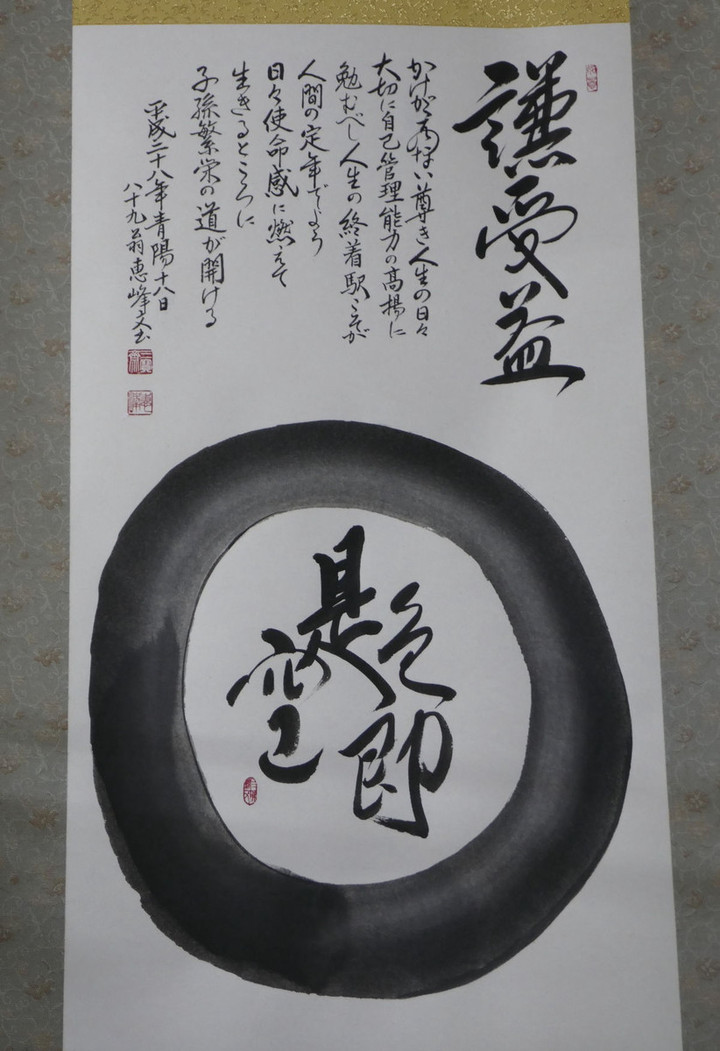 謙受益
かけがえのない尊き人生の日々
大切に自己管理能力の高揚に
勉むべし人生の終着駅こそが
人間の定年でしょう
日々使命感に燃えて
生きるところに
子孫繁栄の道が開ける
平成二十八年青陽十八日
八十九翁 恵峰 書
色即
是空